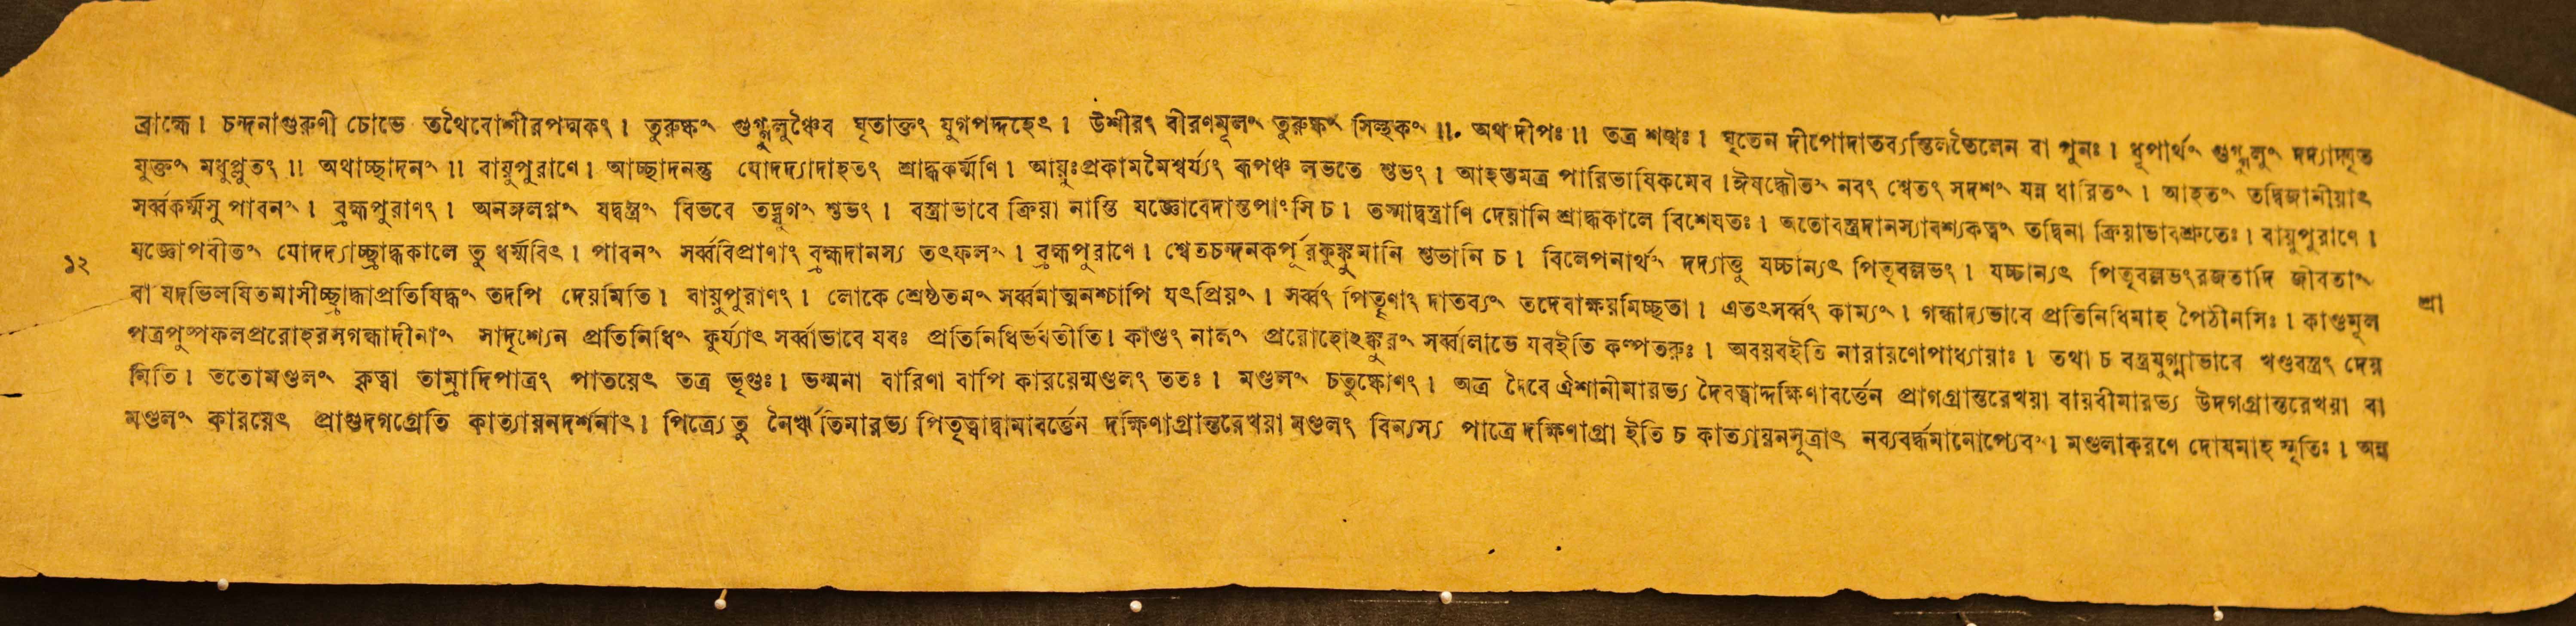 ব্রাহ্মে। চন্দনাগুরুণী চোভে তথৈবোশীরপদ্মকং। তুরুষ্কং গুগ্গুলুঞ্চৈব ঘৃতাক্তং যুগপদ্দহেৎ। উশীরং বীরণমূলং তুরুষ্কং সিল্হকং॥ অথ দীপঃ॥ তত্র শঙ্খঃ। ঘৃতেন দীপোদাতব্যস্তিলতৈলেন বা পুনঃ। ধূপার্থং গুগ্গুলুং দদ্যাদ্ঘৃত
যুক্তং মধুপ্লুতং॥ অথাচ্ছাদনং॥ বায়ুপুরাণে। আচ্ছাদনন্তু যোদদ্যাদাহতং শ্রাদ্ধকর্ম্মণি। আয়ুঃপ্রকামমৈশ্বর্য্যং রূপঞ্চ লভতে শুভং। আহতমত্র পারিভাষিকমেব। ঈষদ্ধৌতং নবং শ্বেতং সদশং যন্ন ধারিতং। আহতং তদ্বিজানীয়াৎ
সর্ব্বকর্ম্মসু পাবনং। ব্রহ্মপুরাণং। অনঙ্গলগ্নং যদ্বস্ত্রং বিভবে তদ্যুগং শুভং। বস্ত্রাভাবে ক্রিয়া নাস্তি যজ্ঞোবেদাস্তপাংসি চ। তস্মাদ্বস্ত্রাণি দেয়ানি শ্রাদ্ধকালে বিশেষতঃ। অতোবস্ত্রদানস্যাবশ্যকত্বং তদ্বিনা ক্রিয়াভাবশ্রুতেঃ। বায়ুপুরাণে।
১২ যজ্ঞোপবীতং যোদদ্যাচ্ছ্রাদ্ধকালে তু ধর্ম্মবিৎ। পাবনং সর্ব্ববিপ্রাণাং ব্রহ্মদানস্য তৎফলং। ব্রহ্মপুরাণে। শ্বেতচন্দনকর্পূরকুঙ্কুমানি শুভানি চ। বিলেপনার্থং দদ্যাত্তু যচ্চান্যৎ পিতৃবল্লভং। যচ্চান্যৎ পিতৃবল্লভংরজতাদি জীবতাং
বা যদভিলষিতমাসীচ্ছ্রাদ্ধাপ্রতিষিদ্ধং তদপি দেয়মিতি। বায়ুপুরাণং। লোকে শ্রেষ্ঠতমং সর্ব্বমাত্মনশ্চাপি যৎপ্রিয়ং। সর্ব্বং পিতৄণাং দাতব্যং তদেবাক্ষয়মিচ্ছতা। এতৎসর্ব্বং কাম্যং। গন্ধাদ্যভাবে প্রতিনিধিমাহ পৈঠীনসিঃ। কাণ্ডমূল শ্রা
পত্রপুষ্পফলপ্ররোহরসগন্ধাদীনাং সাদৃশ্যেন প্রতিনিধিং কুর্য্যাৎ সর্ব্বাভাবে যবঃ প্রতিনিধির্ভবতীতি। কাণ্ডং নালং প্ররোহোঽঙ্কুরং সর্ব্বালাভে যবইতি কল্পতরুঃ। অবয়বইতি নারায়ণোপাধ্যায়াঃ। তথা চ বস্ত্রযুগ্মাভাবে খণ্ডবস্ত্রং দেয়
মিতি। ততোমণ্ডলং কৃত্বা তাম্রাদিপাত্রং পাতয়েৎ তত্র ভৃগুঃ। ভস্মনা বারিণা বাপি কারয়েন্মণ্ডলং ততঃ। মণ্ডলং চতুষ্কোণং। অত্র দৈবে ঐশানীমারভ্য দৈবত্বাদ্দক্ষিণাবর্ত্তেন প্রাগগ্রান্তরেখয়া বায়বীমারভ্য উদগগ্রান্তরেখয়া বা
মণ্ডলং কারয়েৎ প্রাগুদগগ্রেতি কাত্যায়নদর্শনাৎ। পিত্র্যে তু নৈর্ঋতিমারভ্য পিতৃত্বাদ্বামাবর্ত্তেন দক্ষিণাগ্রান্তরেখয়া মণ্ডলং বিন্যস্য পাত্রে দক্ষিণাগ্রা ইতি চ কাত্যায়নসূত্রাৎ নব্যবর্দ্ধমানোপ্যেবং। মণ্ডলাকরণে দোষমাহ স্মৃতিঃ। অন্ন